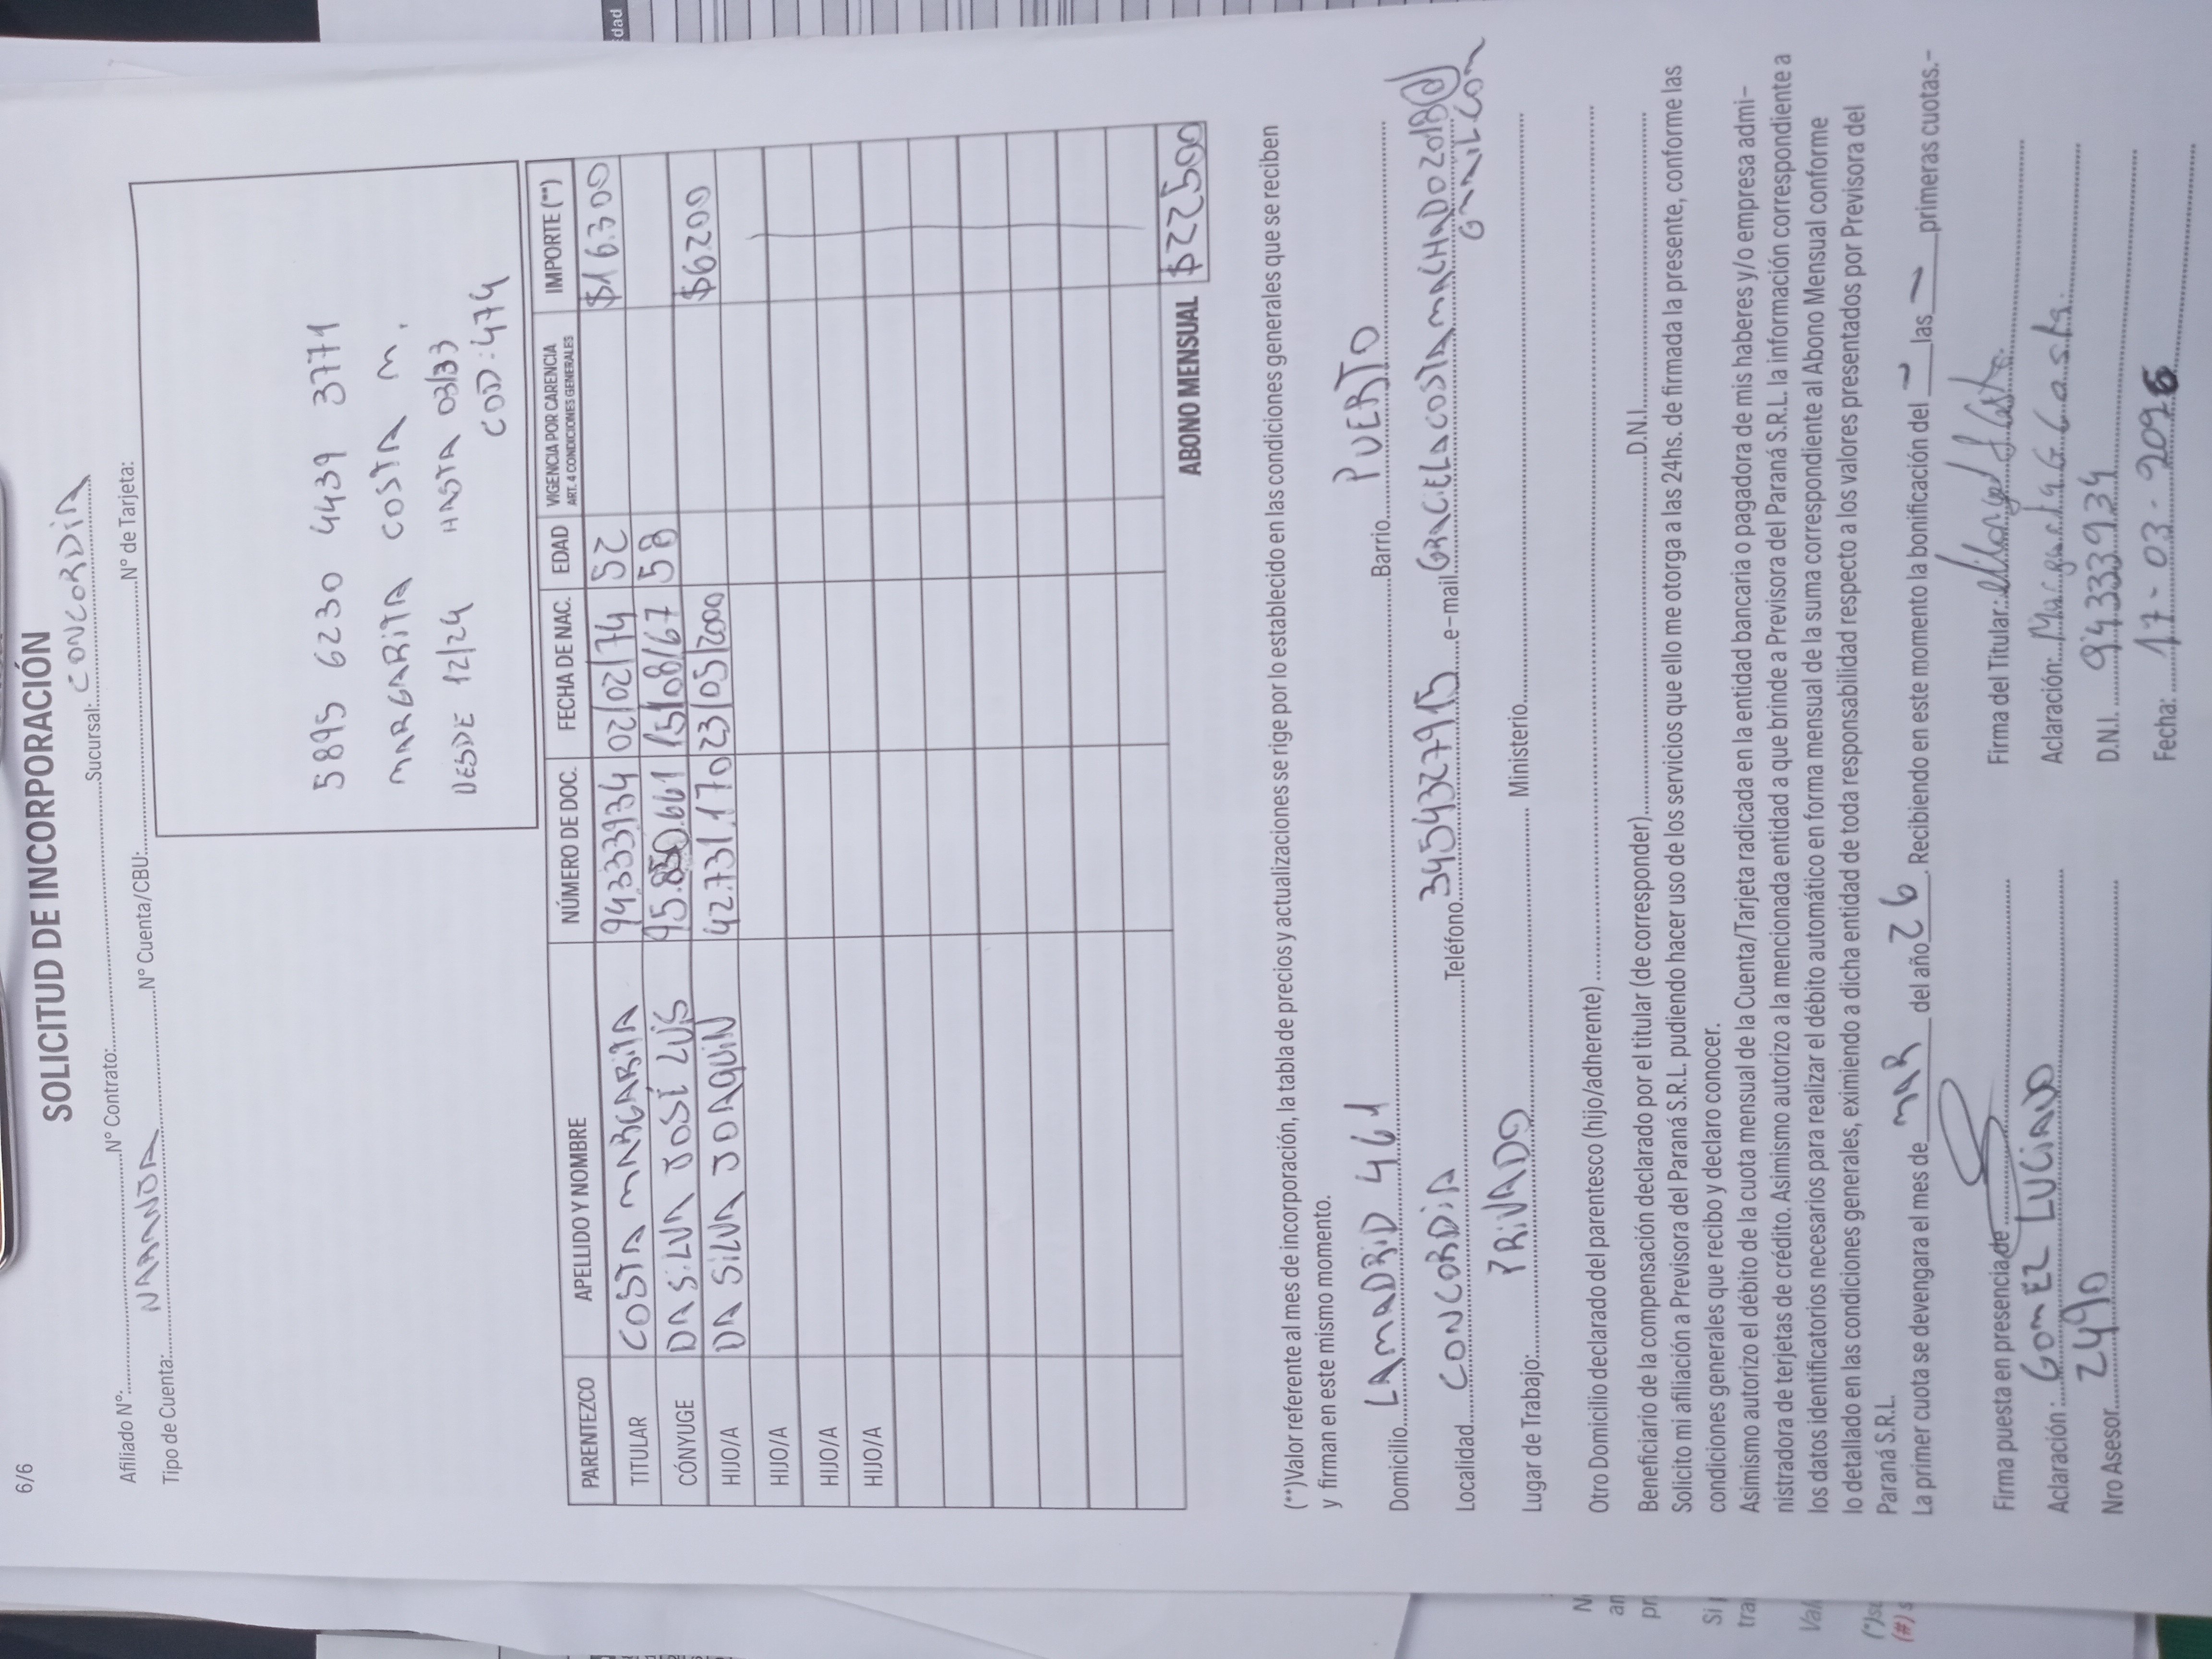 6/6
SOLICITUD DE INCORPORACIÓN
Afiliado Nº: Nº Contrato: Sucursal: CONCORDIA
Tipo de Cuenta: NARANJA Nº Cuenta/CBU: Nº de Tarjeta:
5895 6230 4439 3771
MARGARITA COSTA M.
DESDE 12/24 HASTA 03/33
COD: 474
PARENTEZCO APELLIDO Y NOMBRE NÚMERO DE DOC. FECHA DE NAC. EDAD VIGENCIA POR CARENCIA ART. 4 CONDICIONES GENERALES IMPORTE (**)
TITULAR COSTA MARGARITA 94333934 02/02/74 52 $16.300
CÓNYUGE DA SILVA JOSÉ LUIS 95.850.661 15/08/67 58
HIJO/A DA SILVA JOAQUIN 42.731.170 23/05/2000 $6.200
HIJO/A
HIJO/A
HIJO/A
ABONO MENSUAL $22500
(**)Valor referente al mes de incorporación, la tabla de precios y actualizaciones se rige por lo establecido en las condiciones generales que se reciben
y firman en este mismo momento.
Domicilio LAMADRID 461 Barrio PUERTO
Localidad CONCORDIA Teléfono 3454932795 e-mail GRACIELACOSTAMACHADO2018@
GMAIL.COM
Lugar de Trabajo: PRIVADO Ministerio
Otro Domicilio declarado del parentesco (hijo/adherente)
Beneficiario de la compensación declarado por el titular (de corresponder) D.N.I.
Solicito mi afiliación a Previsora del Paraná S.R.L. pudiendo hacer uso de los servicios que ello me otorga a las 24hs. de firmada la presente, conforme las
condiciones generales que recibo y declaro conocer.
Asimismo autorizo el débito de la cuota mensual de la Cuenta/Tarjeta radicada en la entidad bancaria o pagadora de mis haberes y/o empresa admi-
nistradora de terjetas de crédito. Asimismo autorizo a la mencionada entidad a que brinde a Previsora del Paraná S.R.L. la información correspondiente a
los datos identificatorios necesarios para realizar el débito automático en forma mensual de la suma correspondiente al Abono Mensual conforme
lo detallado en las condiciones generales, eximiendo a dicha entidad de toda responsabilidad respecto a los valores presentados por Previsora del
Paraná S.R.L.
La primer cuota se devengara el mes de MAR del año 26. Recibiendo en este momento la bonificación del las primeras cuotas.-
Firma puesta en presencia de Firma del Titular:
Aclaración: GOMEZ LUCIANO Aclaración: Margarita G Costa.
Nro Asesor 2490 D.N.I. 94.333934
Fecha: 17-03-2026